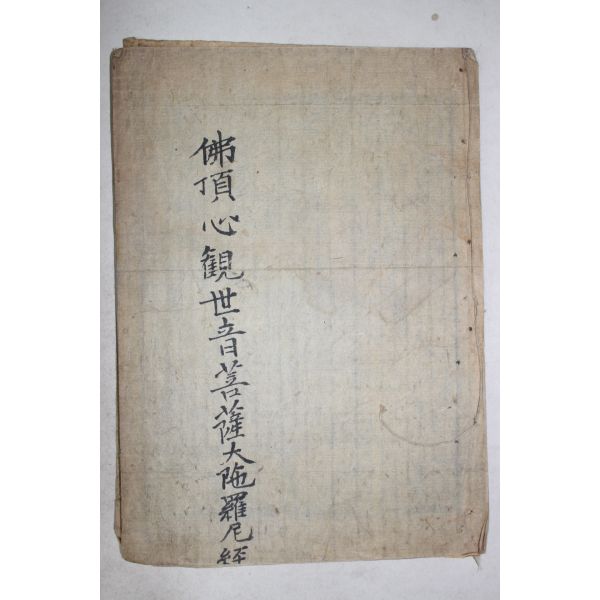 佛頂心觀世音菩薩大陁羅尼経